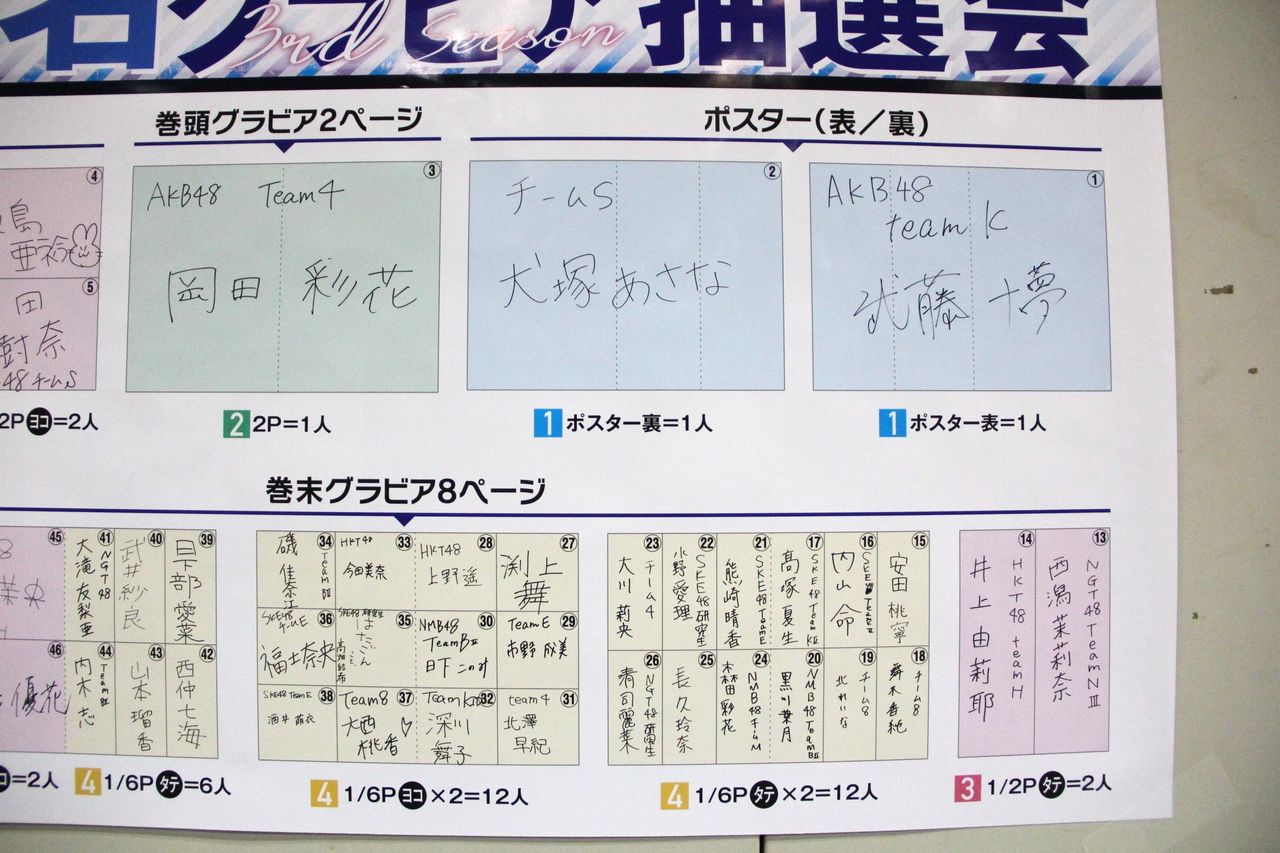 名グラビア抽選会
3rd Season
巻頭グラビア2ページ
ポスター(表/裏)
④
島
亜
⑤
田
樹奈
48 チームS
2Pヨコ=2人
③
AKB48 Team4
岡田 彩花
2 2P=1人
②
チームS
犬塚 あさな
1 ポスター裏=1人
①
AKB48
team K
武藤 十夢
1 ポスター表=1人
巻末グラビア8ページ
㊺
㊻
優花
=2人
㊶
NGT48
大滝友梨亜
㊵
武井紗良
㊴
日下部愛菜
㊹
TeamBⅡ
内木志
㊸
山本瑠香
㊷
西仲七海
4 1/6Pタテ=6人
㉞
TeamBⅡ
磯佳奈江
㉝
HKT48
今田美奈
㉘
HKT48
上野遥
㉗
渕上
舞
㊱
SKE48
チームE
福士奈央
㉟
SKE48 研究生
㉚
NMB48
TeamBⅡ
日下このみ
㉙
TeamE
市野成美
㊳
SKE48 TeamE
酒井萌衣
㊲
Team8
大西
桃香
㉜
TeamKⅣ
深川
舞子
㉛
team4
北澤
早紀
4 1/6Pヨコ×2=12人
㉓
チーム4
大川莉央
㉒
SKE48研究生
小野愛理
㉑
SKE48 TeamE
熊崎晴香
⑰
SKE48 TeamKⅡ
高塚夏生
⑯
内山命
⑮
安田桃寧
㉖
NGT48 研究生
清司麗菜
㉕
長久玲奈
㉔
NMB48チームM
林田彩花
⑳
NMB48 TeamBⅡ
黒川葉月
⑲
チーム8
北れいな
⑱
チーム8
舞木香純
4 1/6Pタテ×2=12人
⑭
HKT48 teamH
井上由莉耶
⑬
NGT48 TeamNⅢ
西潟茉莉奈
3 1/2Pタテ=2人